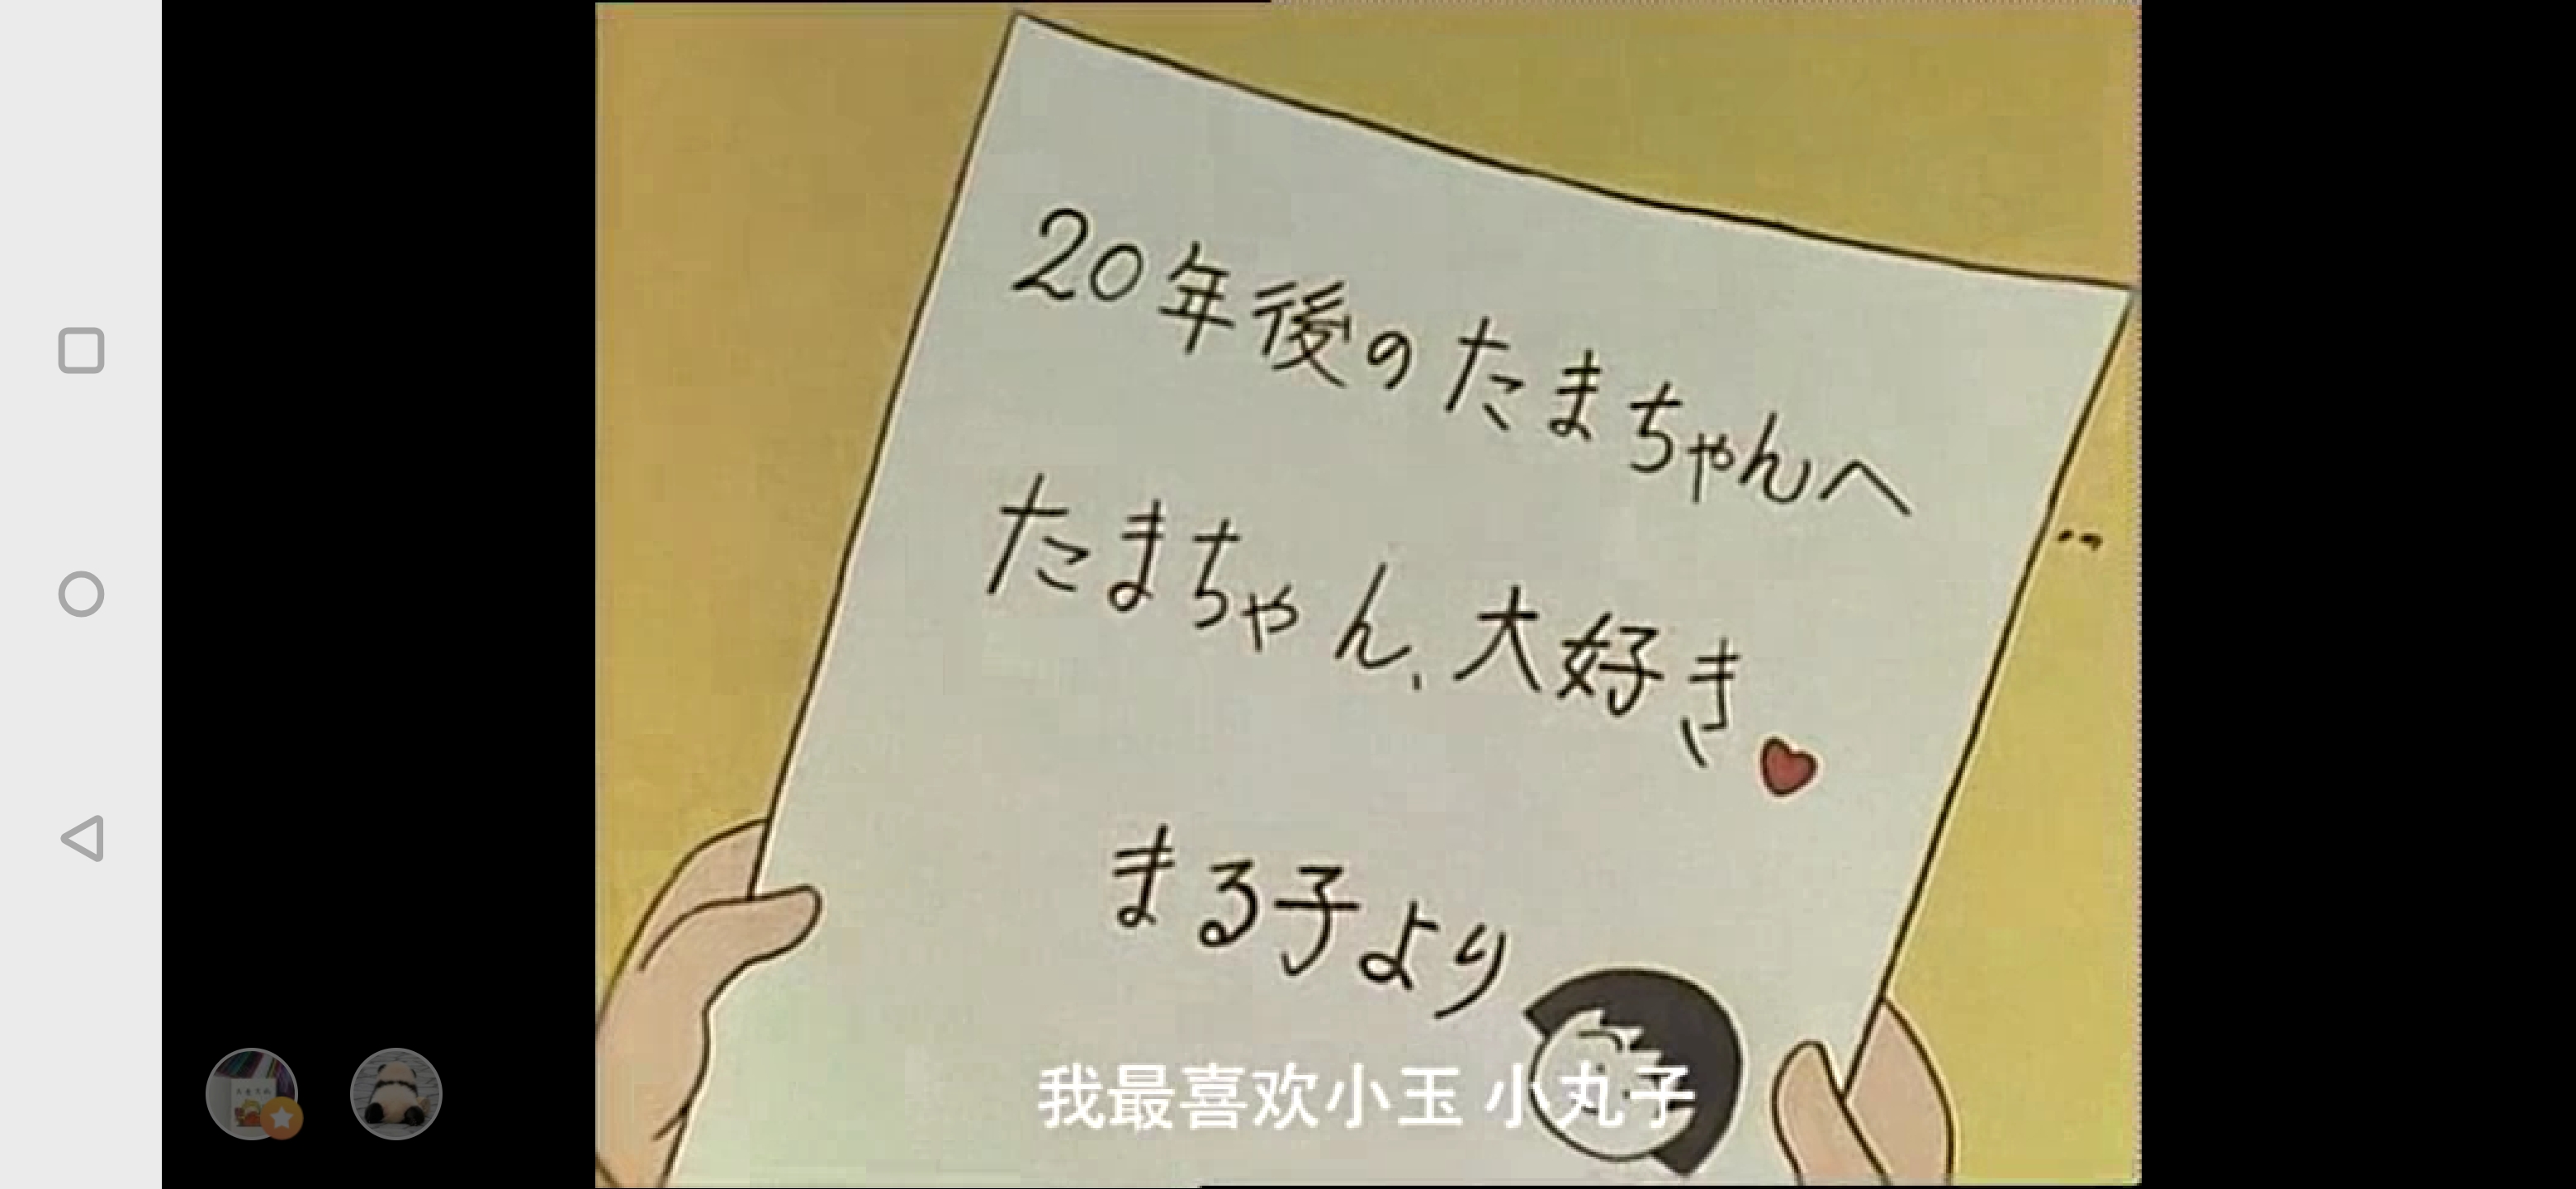 20年後のたまちゃんへ
たまちゃん、大好き
まる子より
我最喜欢小玉 小丸子